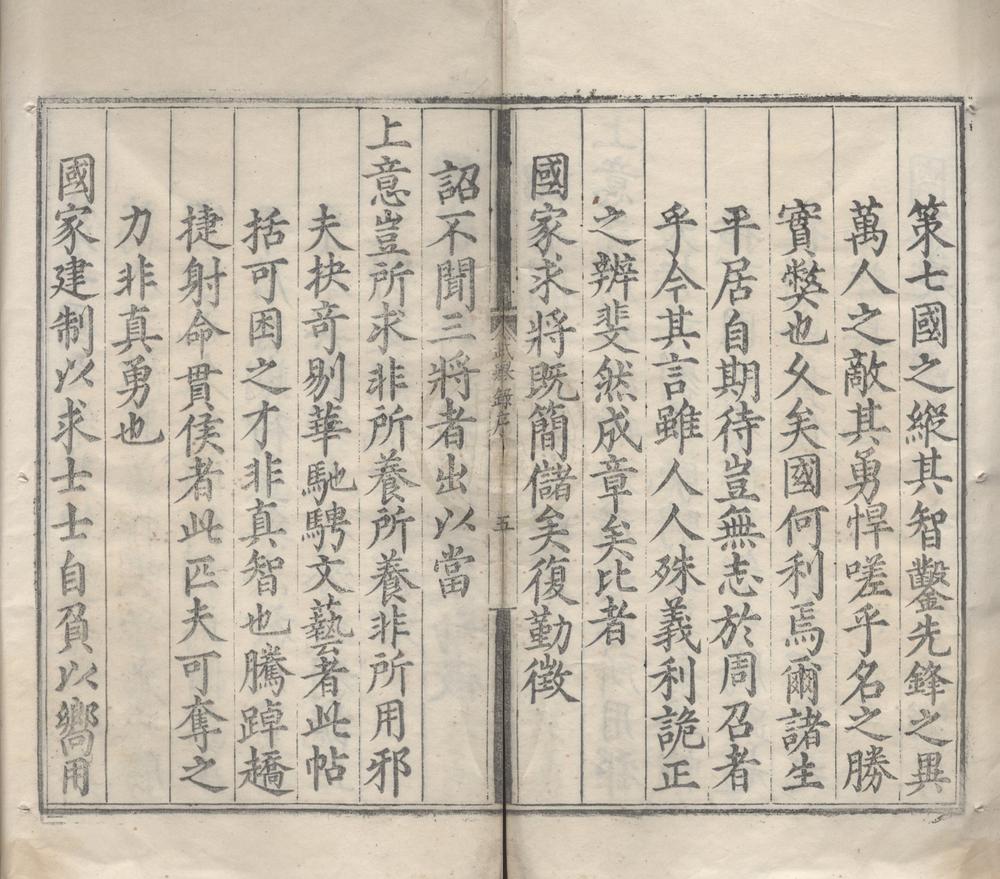 策七國之縱其智鑿先鋒之異
萬人之敵其勇悍嗟乎名之勝
實弊也久矣國何利焉爾諸生
平居自期待豈無志於周召者
乎今其言雖人人殊義利詭正
之辨斐然成章矣比者
國家求將既簡儲矣復勤徵
武舉錄序
五
詔不聞三將者出以當
上意豈所求非所養所養非所用邪
夫抉奇剔華馳騁文藝者此帖
括可困之才非真智也騰踔趫
捷射命貫侯者此匹夫可奪之
力非真勇也
國家建制以求士士自負以嚮用